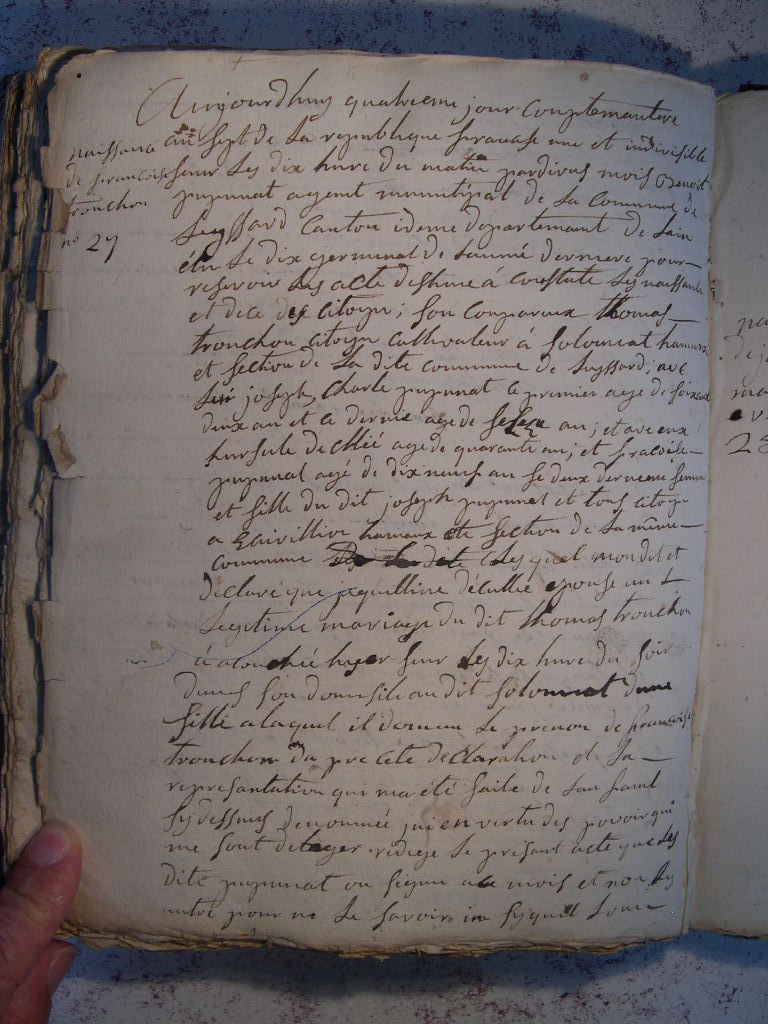 Aujourdhuy quatrieme jour complemantere
naissance
de francoise
tronchon
no 29
an sept de la republique francase une et indivisible
sur les dix hure du matin pardivas mois Benoit
pupunat agent munitipal de la Commune de
Seyssard Canton idem departemant de lain
élu le dix germinal de lanné derniere pour
resevoir les acte destiné à constaté les naissance
et dece des citoyen ; son conparaux thomas
tronchon citoyen cultivateur à solomiat hamaux
et section de la dite commune de Seyssard ; avec
joseph Charle pupunat le premier age de soixant
deux an et le dernie age de seze an ; et avec eux
hursule decllié age de quarante an ; et
pupunat agé de dix neuf an se deux derniere femme
et fille du dit joseph pupunat et tous citoyen
a hamaux et section de la même
commune lesquel mon dit et
declaré que jaquilline décullié epouse un
legitime mariage du dit thomas tronchon
à acouchée hyer sur les dix hure du soir
dans son domisile au dit solomiat dune
fille a laquel il donnen le prenon de francoise
tronchon da pre cete declaration et la
represantation qui ma été faite de lan fant
sydessus denonmée jai en vertu des povoir qui
me sont deleger redige le présant acte que les
dite pupunat on signe avec mois et non les
autre pour ne le savoir